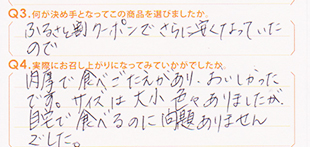 Q3.何が決め手となってこの商品を選びましたか。
ふるさと割クーポンでさらに安くなっていた
ので
Q4.実際にお召し上がりになってみていかがでしたか。
肉厚で食べごたえがあり、おいしかった
です。サイズは大小色々ありましたが、
自宅で食べるのに問題ありません
でした。